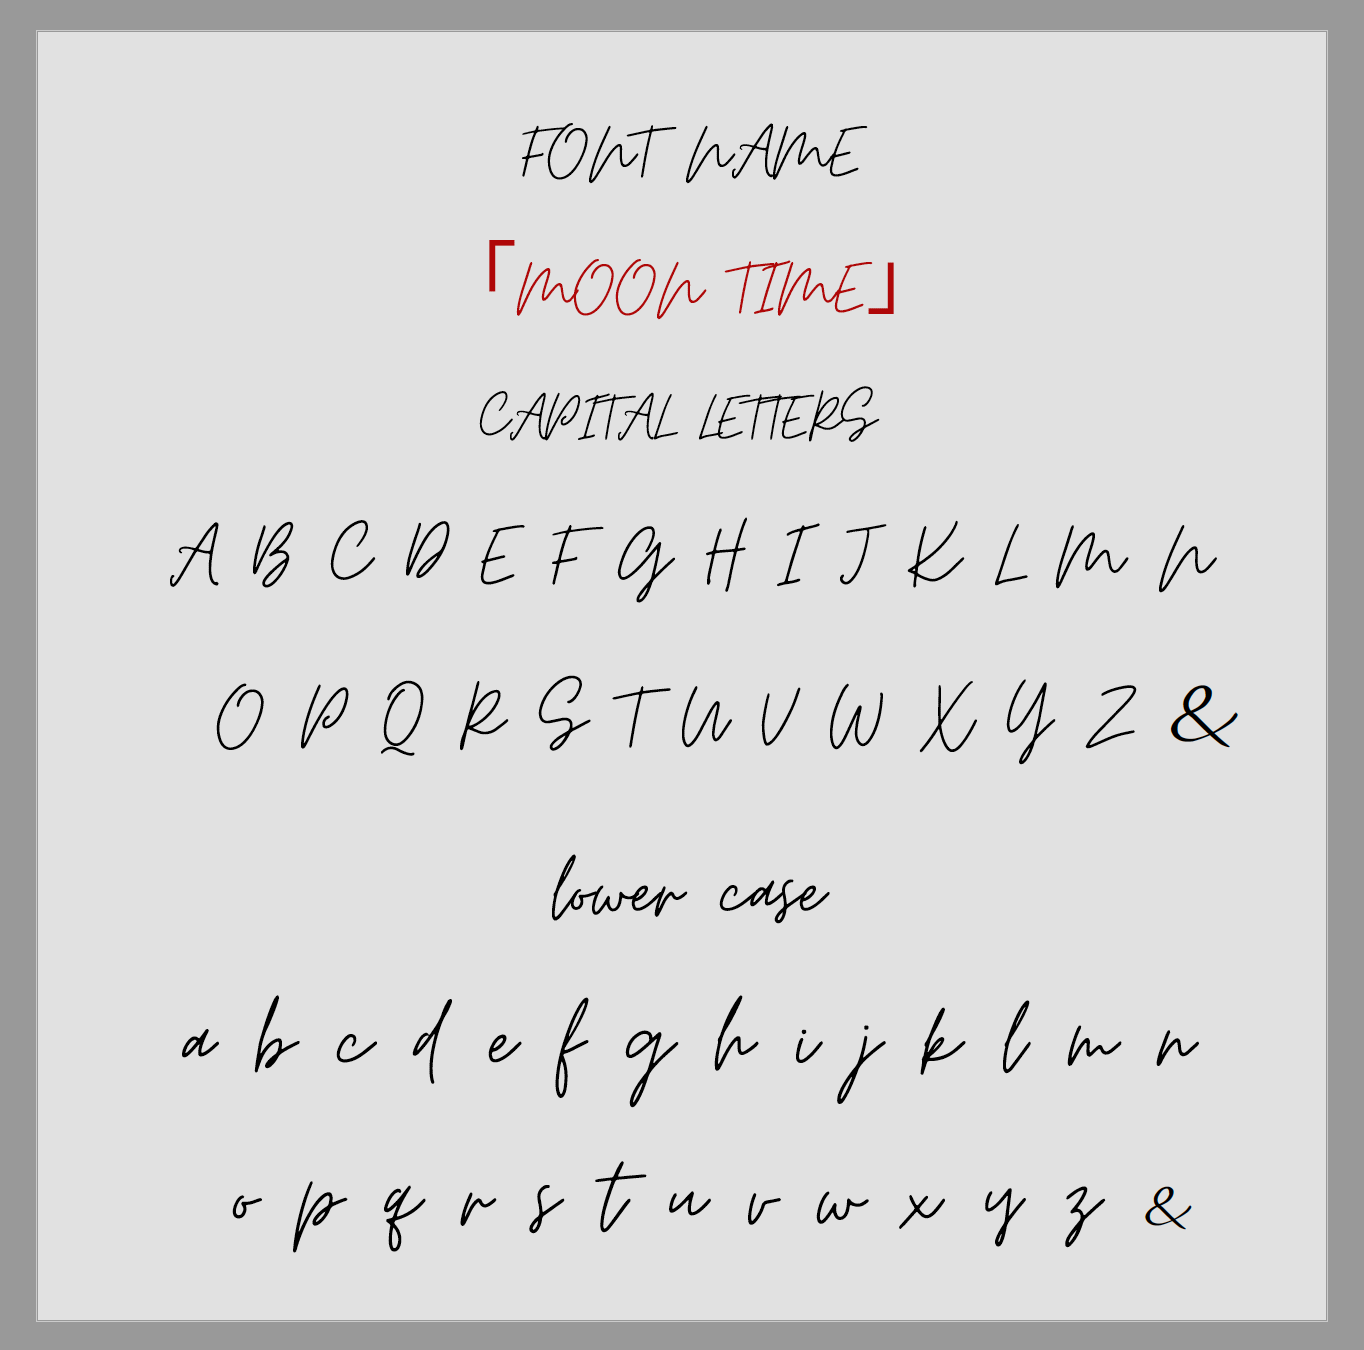 FONT NAME
「MOON TIME」
CAPITAL LETTERS
A B C D E F G H I J K L M N
O P Q R S T U V W X Y Z &
lower case
a b c d e f g h i j k l m n
o p q r s t u v w x y z &